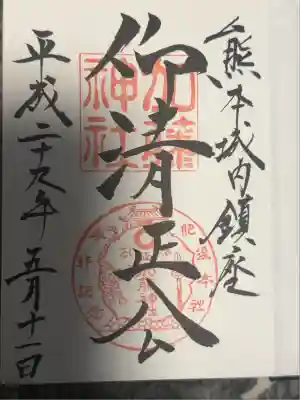 熊本城内鎮座
仰清正公
加藤神社
平成二十九年五月十一日